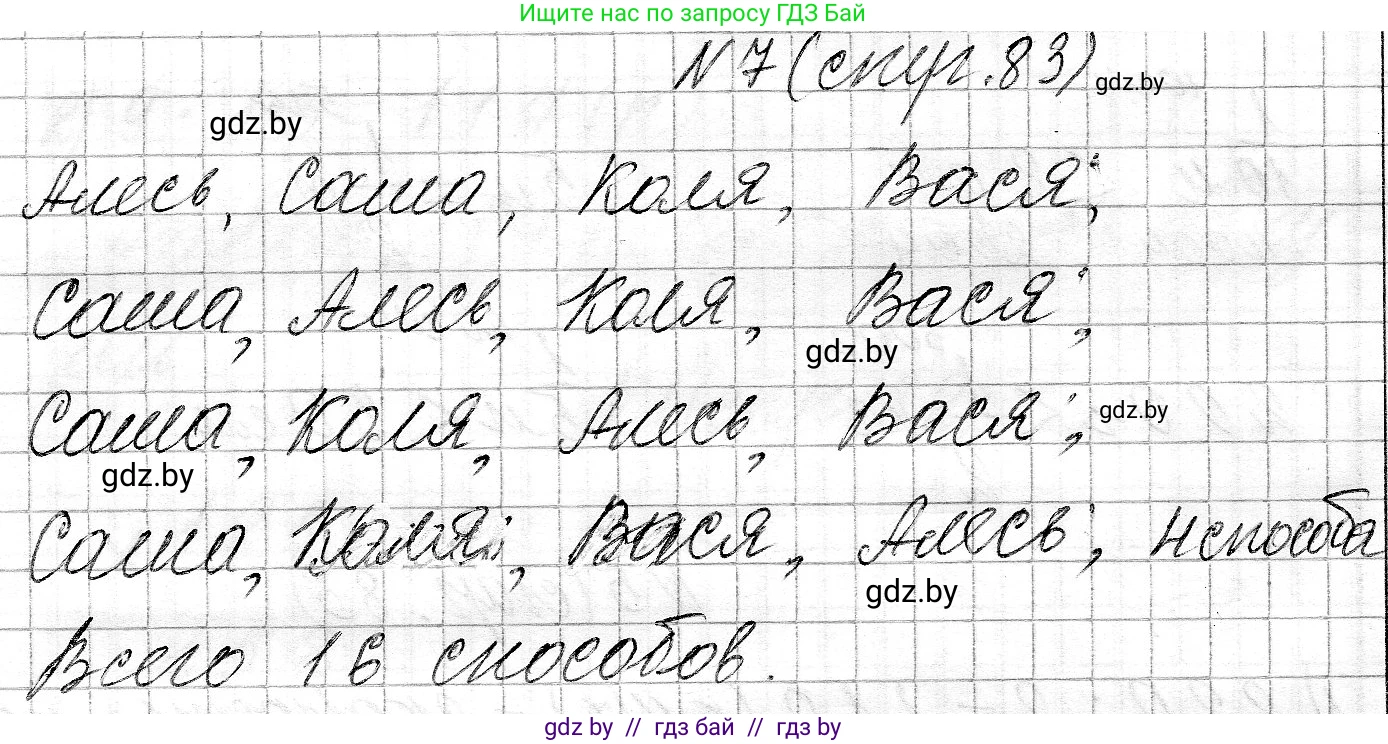 Ищите нас по запросу ГДЗ Бай
N 7 (стр. 83) gdz.by
gdz.by
Алесь, Саша, Коля, Вася;
Саша, Алесь, Коля, Вася;
gdz.by
Саша, Коля, Алесь, Вася; gdz.by
gdz.by
Саша, Коля, Вася, Алесь; 4 способа
gdz.by
Всего 16 способов.
gdz by // гдз бай // гдз by